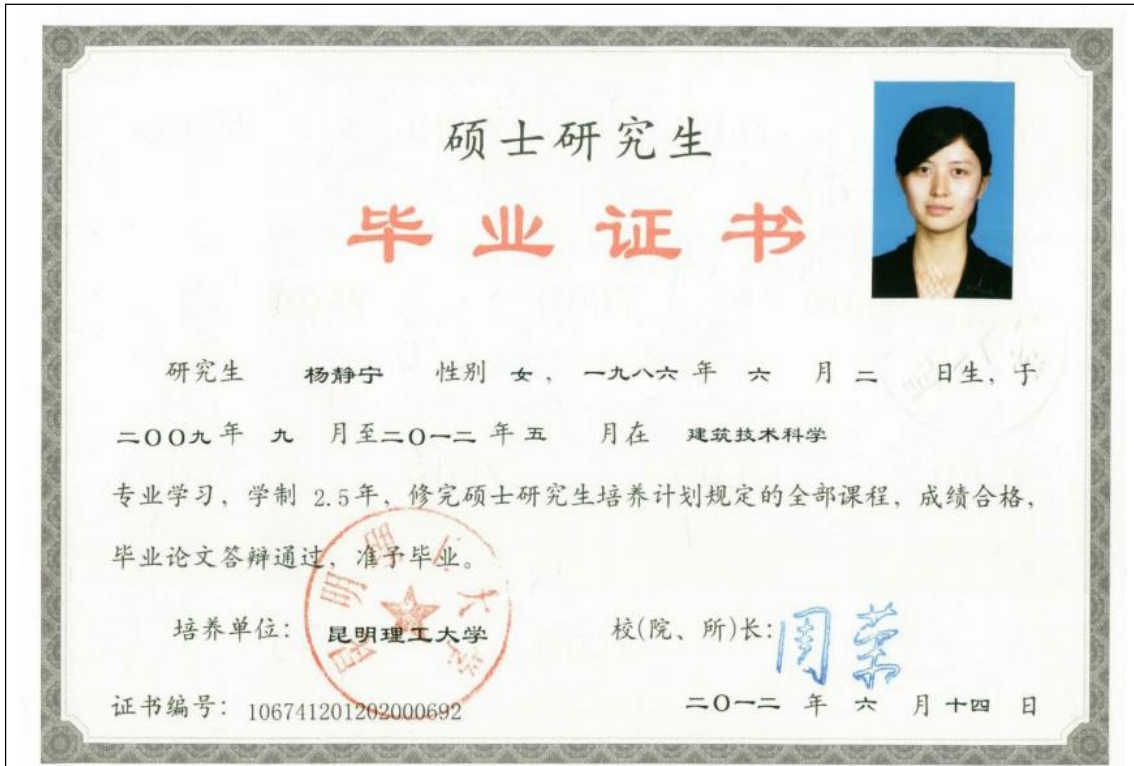 硕士研究生
毕业证书
研究生 杨静宁 性别 女，一九八六年 六 月 二 日生，于
二〇〇九年 九 月至二〇一二年 五 月在 建筑技术科学
专业学习，学制 2.5年，修完硕士研究生培养计划规定的全部课程，成绩合格，
毕业论文答辩通过，准予毕业。
昆明理工大学
培养单位： 昆明理工大学 校(院、所)长：周荣
证书编号：106741201202000692 二〇一二 年 六 月 十四 日